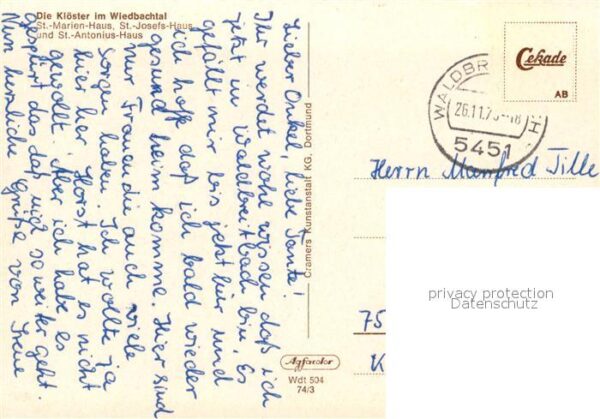 Die Klöster im Wiedbachtal
St.-Marien-Haus, St.-Josefs-Haus
und St.-Antonius-Haus
Lieber Onkel, liebe Tante!
Ihr werdet wohl wissen daß ich
jetzt in Waldbreitbach bin. Es
gefällt mir bis jetzt hier und
ich hoffe daß ich bald wieder
gesund heim komme. Hier sind
nur Frauen die auch viele
Sorgen haben. Ich wollte ja
hier her Horst hat es nicht
gewollt. Aber ich habe es
gespürt das daß nicht so weiter geht.
Nun herzliche Grüße von Irene
Cramers Kunstanstalt KG, Dortmund
Agfacolor
Wdt 504
74/3
Cekade
AB
WALDBR H
26.11.7 -18
5451
Herrn Manfred Tille
privacy protection
Datenschutz
75
K